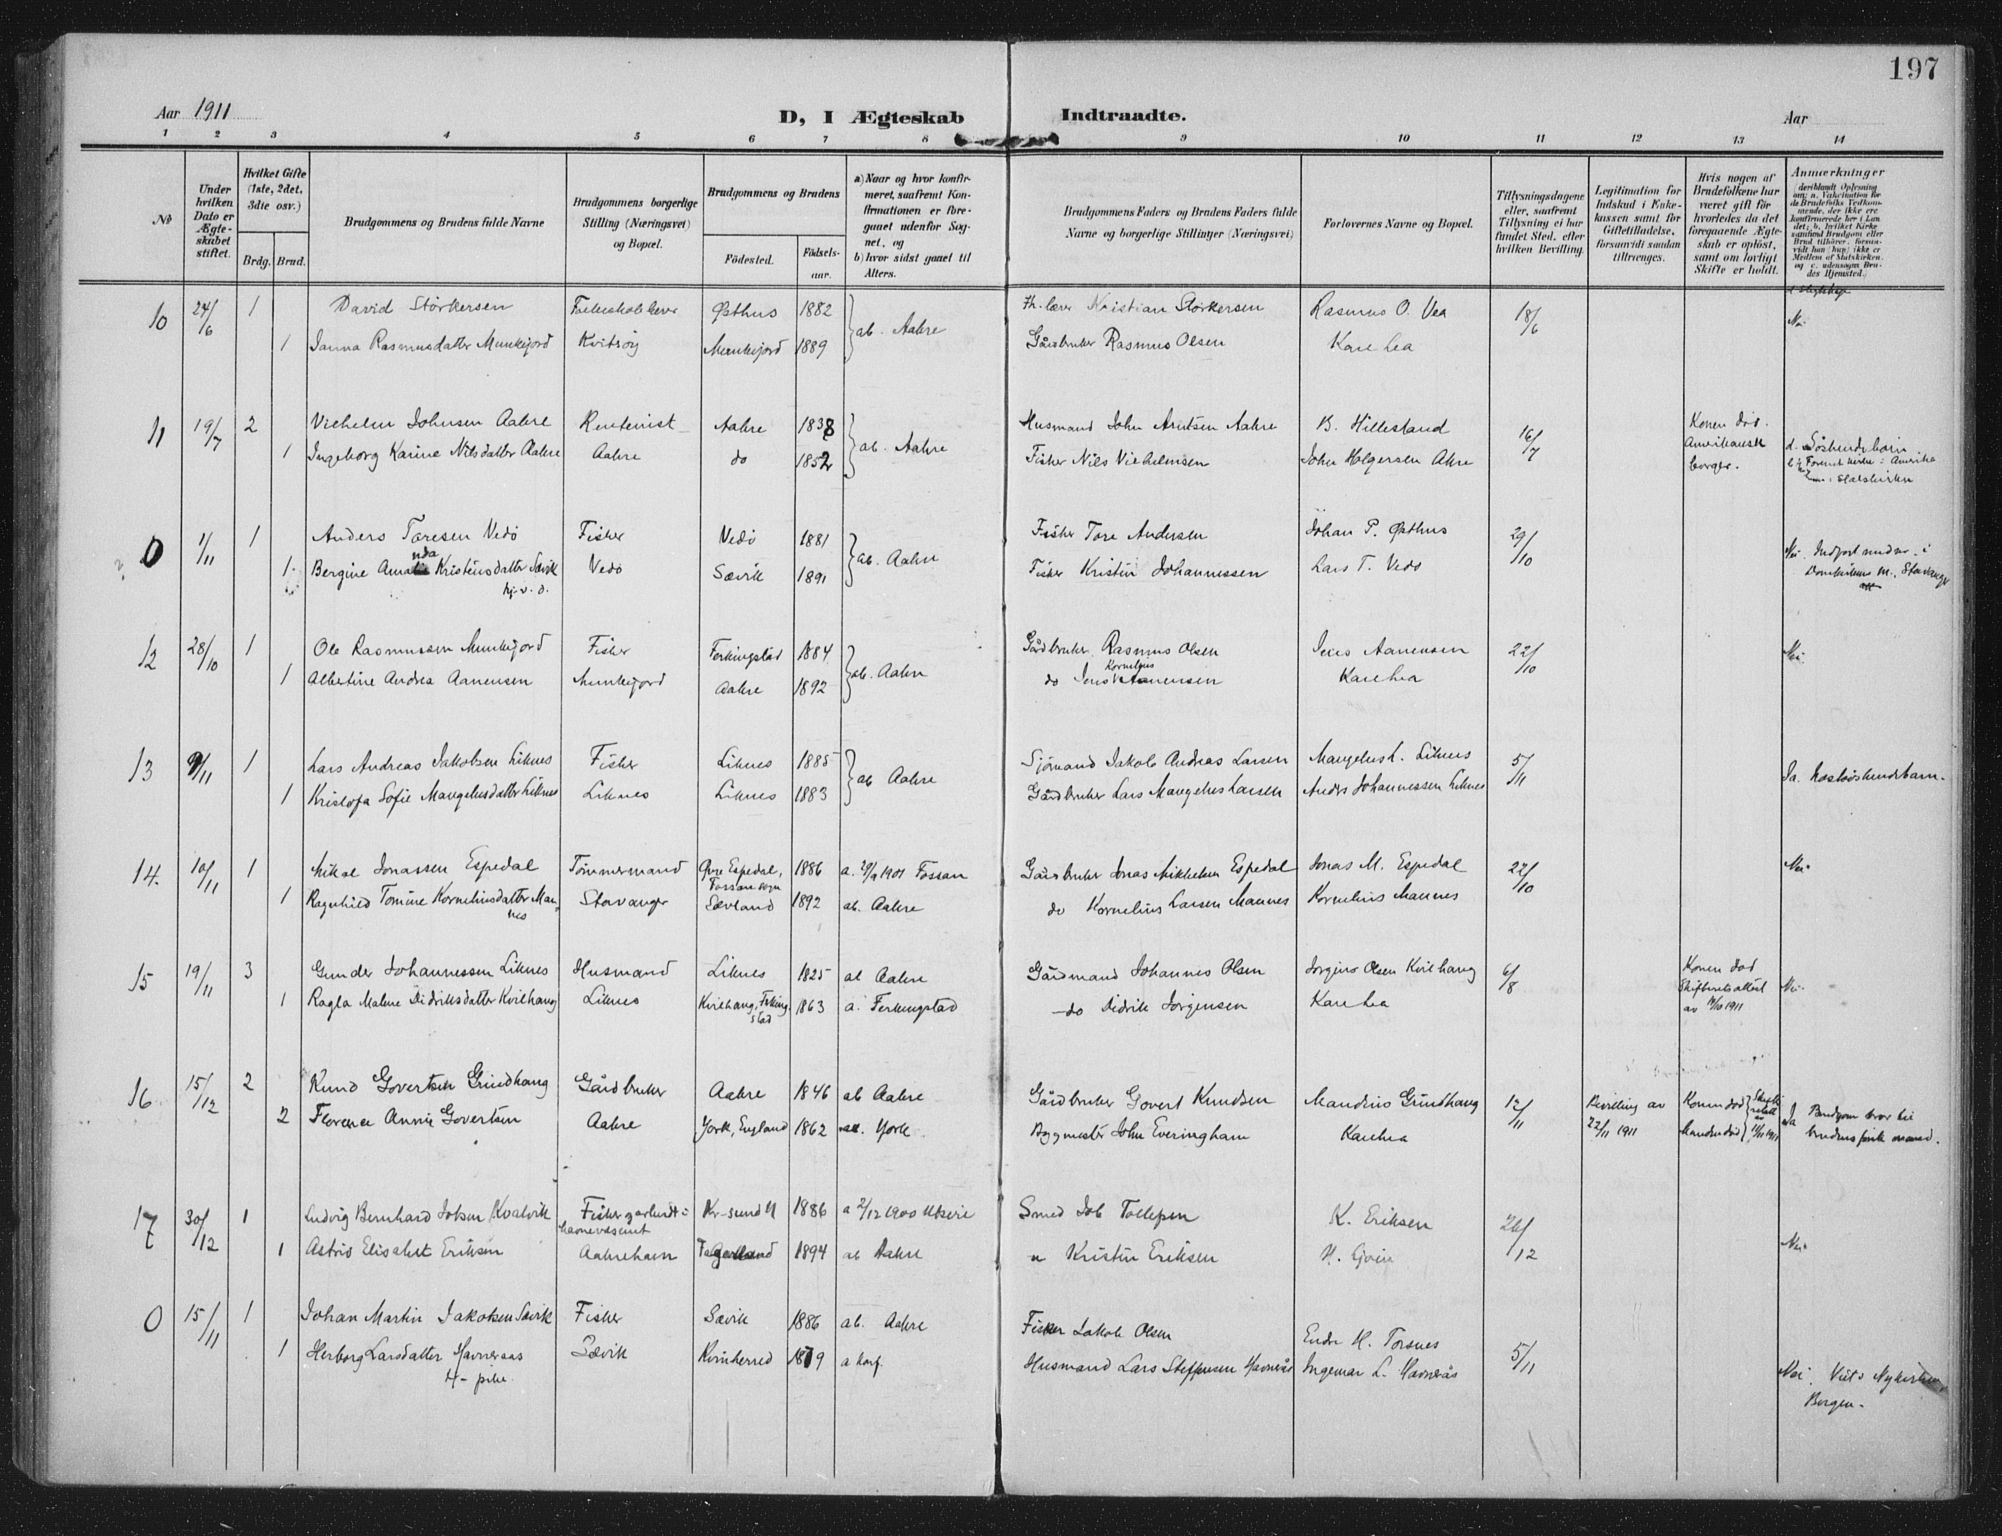 197
Aar 1911
D, I Ægteskab Indtraadte.
Aar
1 2 3 4 5 6 7 8 9 10 11 12 13 14
No
Under hvilken Dato er Ægteskabet stiftet.
Hvilket Gifte (1ste, 2det, 3die osv.)
Brdg. Brud.
Brudgommens og Brudens fulde Navne
Brudgommens borgerlige Stilling (Næringsvei) og Bopæl.
Brudgommens og Brudens
Fødested. Fødselsaar.
a) Naar og hvor konfirmeret, saafremt Konfirmationen er foregaaet udenfor Sognet, og
b) hvor sidst gaaet til Alters.
Brudgommens Faders og Brudens Faders fulde Navne og borgerlige Stillinger (Næringsvei)
Forlovernes Navne og Bopæl.
Tillysningsdagene eller, saafremt Tillysning ei har fundet Sted, efter hvilken Bevilling.
Legitimation for Indskud i Enkekassen samt for Giftetilladelse, forsaavidt saadan tiltrænges.
Hvis nogen af Brudefolkene har været gift før hvorledes da det foregaaende Ægteskab er opløst, samt om lovligt Skifte er holdt.
Anmærkninger
10 24/6 1 David Störkersen Folkeskolelærer Østhus 1882 ab. Aakre Kristian Störkersen Rasmus O. Vea 18/6 Nei
1 Janna Rasmusdatter Munkejord Kvitsöy Munkejord 1889 Gårdbruker Rasmus Olsen Karehea
11 19/7 2 Vilhelm Johnsen Aakre Rentenist Aakre 1838 ab. Aakre Husmand John Arntsen Aakre B. Hillesland 16/7 Konen död. Amerikansk borger.
1 Ingeborg Karine Nilsdatter Aakre Aakre do 1852 Fisker Nils Vilhelmsen John Holgersen Akre d. Söskendebörn
0 1/11 1 Anders Toresen Vedö Fisker Vedö 1881 ab. Aakre Fisker Tore Andersen Johan P. Østhus 29/10 Nei. Indfört under i
1 Bergine Amanda Kristensdatter Sævik Vedö Sævik 1891 Fisker Kristen Johannessen Lars T. Vedö Domkirkens m. Stavanger
12 28/10 1 Ole Rasmussen Munkejord Fisker Ferkingstad 1884 ab. Aakre Gårdbruker Rasmus Olsen Jens Aanensen 22/10 Nei
1 Albertine Andrea Aanensen Munkejord Aakre 1892 do Jens Kornelius Aanensen Karehea
13 9/11 1 Lars Andreas Jakobsen Liknes Fisker Liknes 1885 ab Aakre Sjömand Jakob Andreas Larsen Mangelus L. Liknes 5/11 Ja. Næstsöskendebarn.
1 Kristofa Sofie Mangelusdatter Liknes Liknes Liknes 1883 Gårdbruker Lars Mangelus Larsen Anders Johannessen Liknes
14. 10/11 1 Mikal Jonassen Espedal Tömmermand Øvre Espedal, Fossan sogn 1886 a. 29/9 1901 Fossan Gårdbruker Jonas Mikkelsen Espedal Jonas M. Espedal 22/10 Nei
1 Ragnhild Tomine Korneliusdatter Mannes Stavanger Sævland 1892 ab. Aakre do Kornelius Larsen Mannes Kornelius Mannes
15 19/11 3 Gunder Johannessen Liknes Husmand Liknes 1825 ab Aakre Gårdmand Johannes Olsen Jörgine Olsen Kvilhaug 6/8 Konen död Skifteretsattest av 14/10 1911 Nei
1 Ragla Malene Didriksdatter Kvilhaug Liknes Kvilhaug, Ferkingstad 1863 a. Ferkingstad do Didrik Jörgensen Karehea
16 15/12 2 Knud Govertsen Grindhaug Gårdbruker Aakre 1846 ab Aakre Gårdbruker Govert Knudsen Mandius Grindhaug 12/11 Bevilling av 22/11 1911 Konen död Ja Brudgom bror til
2 Florence Annie Govertsen Aakre York, England 1862 York. Bygmester John Everingham Karehea Manden död 11/11 1911 brudens første mand.
17 30/12 1 Ludvig Bernhard Jobsen Kvalvik Fisker og arbeidt i havnevæsenet Kr-sund N 1886 a 2/12 1900 Smed Job Tollefsen K. Eriksen 26/12 Nei
1 Astrid Elisabet Eriksen Aakrehavn Fagerland 1894 ab Aakre Kristen Eriksen H. Gjein
0 15/11 1 Johan Martin Jakobsen Sævik Fisker Sævik 1886 ab. Aakre Fisker Jakob Olsen Endre H. Torsnes 5/11
1 Herborg Larsdatter Havneraas Sævik Kvinherred 1879 a Konf. Husmand Lars Steffensen Havneraas Ingemar L. Havnerås Nei. Viet i Nykirken Bergen.
H-pike